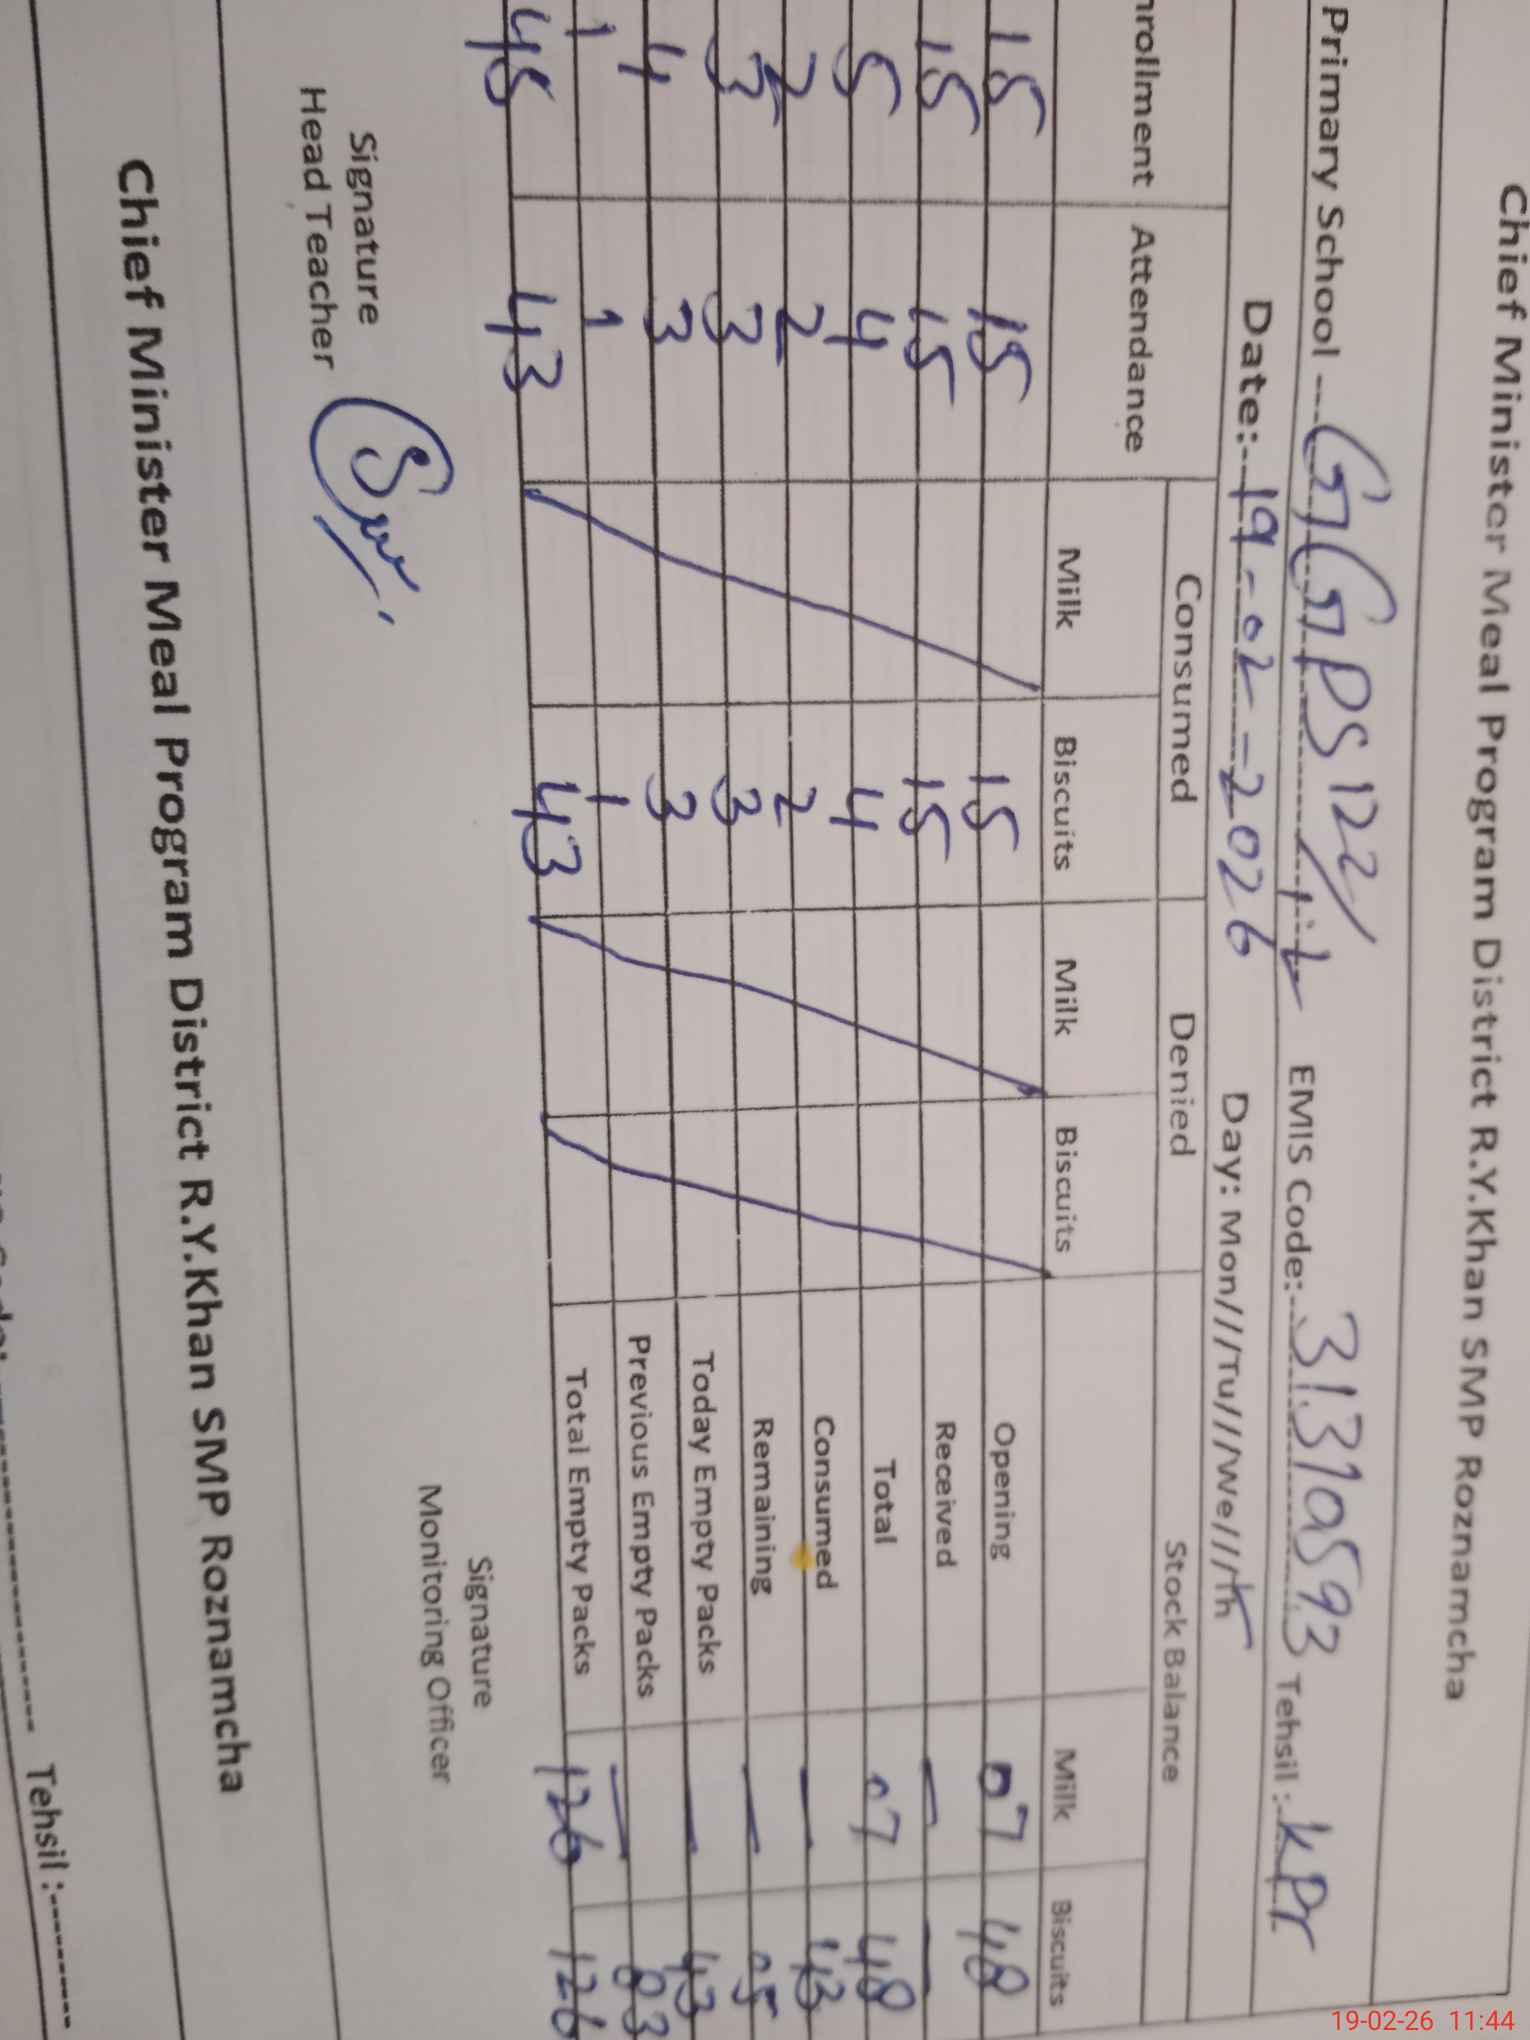 Chief Minister Meal Program District R.Y.Khan SMP Roznamcha
Primary School GGPS 122/1-L EMIS Code: 31310593 Tehsil: KPr
Date: 19-02-2026 Day: Mon///Tu///We///Th
nrollment Attendance Consumed Denied Stock Balance
Milk Biscuits Milk Biscuits Milk Biscuits
15 15 15 Opening 07 48
15 15 15 Received — —
5 4 4 Total 07 48
2 2 2 Consumed — 43
3 3 3 Remaining — 05
4 3 3 Today Empty Packs — 43
1 1 1 Previous Empty Packs — 83
45 43 43 Total Empty Packs 126 126
Signature
Head Teacher
Signature
Monitoring Officer
Chief Minister Meal Program District R.Y.Khan SMP Roznamcha
Tehsil :
19-02-26 11:44